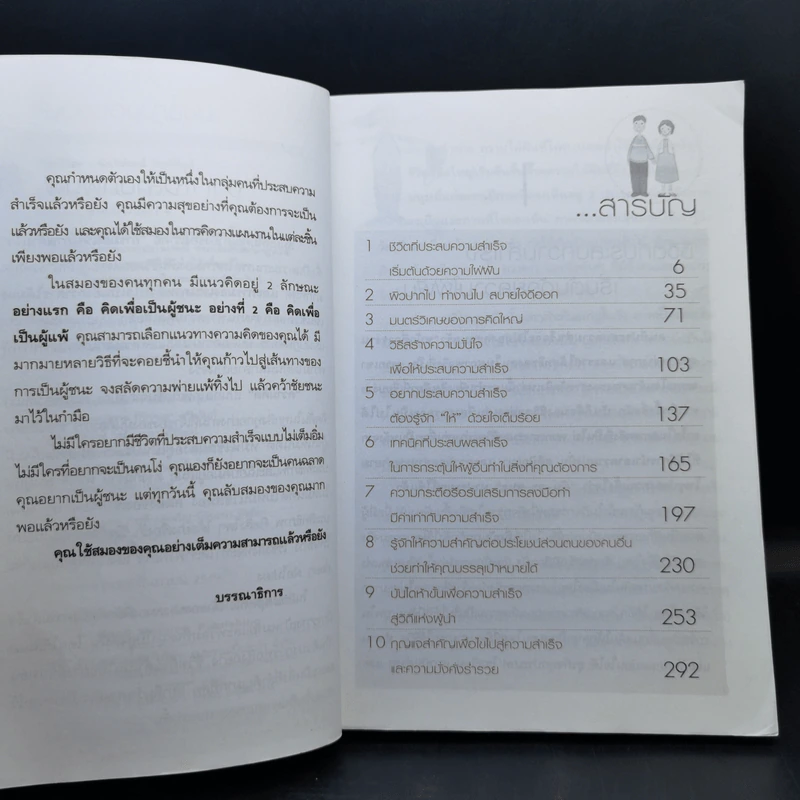 คุณกำหนดตัวเองให้เป็นหนึ่งในกลุ่มคนที่ประสบความ
สำเร็จแล้วหรือยัง คุณมีความสุขอย่างที่คุณต้องการจะเป็น
แล้วหรือยัง และคุณได้ใช้สมองในการคิดวางแผนงานในแต่ละชิ้น
เพียงพอแล้วหรือยัง
ในสมองของคนทุกคน มีแนวคิดอยู่ 2 ลักษณะ
อย่างแรก คือ คิดเพื่อเป็นผู้ชนะ อย่างที่ 2 คือ คิดเพื่อ
เป็นผู้แพ้ คุณสามารถเลือกแนวทางความคิดของคุณได้ มี
มากมายหลายวิธีที่จะคอยชี้นำให้คุณก้าวไปสู่เส้นทางของ
การเป็นผู้ชนะ จงสลัดความพ่ายแพ้ทิ้งไป แล้วคว้าชัยชนะ
มาไว้ในกำมือ
ไม่มีใครอยากมีชีวิตที่ประสบความสำเร็จแบบไม่เต็มอิ่ม
ไม่มีใครที่อยากจะเป็นคนโง่ คุณเองก็ยังอยากจะเป็นคนฉลาด
คุณอยากเป็นผู้ชนะ แต่ทุกวันนี้ คุณลับสมองของคุณมาก
พอแล้วหรือยัง
คุณใช้สมองของคุณอย่างเต็มความสามารถแล้วหรือยัง
บรรณาธิการ
...สารบัญ
1 ชีวิตที่ประสบความสำเร็จ
เริ่มต้นด้วยความใฝ่ฝัน 6
2 ผิวปากไป ทำงานไป สบายใจดีออก 35
3 มนตร์วิเศษของการคิดใหญ่ 71
4 วิธีสร้างความมั่นใจ
เพื่อให้ประสบความสำเร็จ 103
5 อยากประสบความสำเร็จ
ต้องรู้จัก "ให้" ด้วยใจเต็มร้อย 137
6 เทคนิคที่ประสบผลสำเร็จ
ในการกระตุ้นให้ผู้อื่นทำในสิ่งที่คุณต้องการ 165
7 ความกระตือรือร้นเสริมการลงมือทำ
มีค่าเท่ากับความสำเร็จ 197
8 รู้จักให้ความสำคัญต่อประโยชน์ส่วนตนของคนอื่น
ช่วยทำให้คุณบรรลุเป้าหมายได้ 230
9 บันไดห้าขั้นเพื่อความสำเร็จ
สู่วิถีแห่งผู้นำ 253
10 กุญแจสำคัญเพื่อไขไปสู่ความสำเร็จ
และความมั่งคั่งร่ำรวย 292